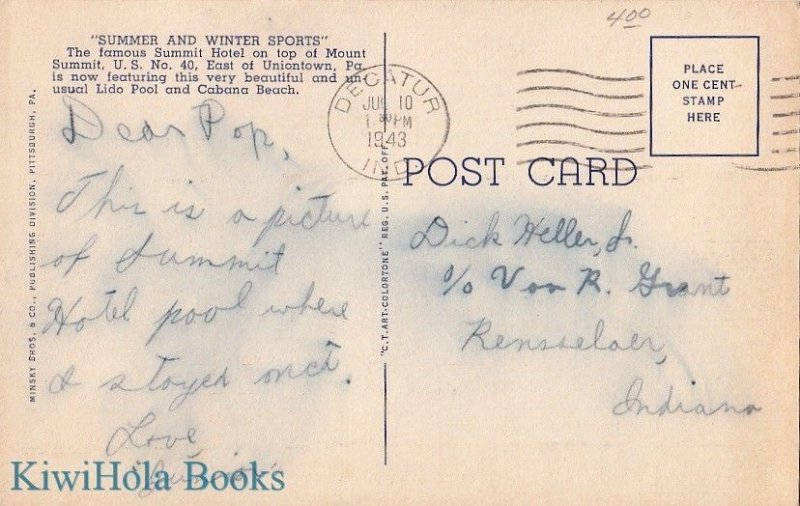 400
"SUMMER AND WINTER SPORTS"
The famous Summit Hotel on top of Mount
Summit, U. S. No. 40, East of Uniontown, Pa.
is now featuring this very beautiful and un-
usual Lido Pool and Cabana Beach.
DECATUR
10
PM
1943
IND.
PLACE
ONE CENT
STAMP
HERE
POST CARD
Dear Pop,
This is a picture
of Summit
Hotel pool where
I stayed once.
Love
"Junior"
Dick Heller, Jr.
c/o Von R. Grant
Rensselaer,
Indiana
MINSKY BROS. & CO., PUBLISHING DIVISION, PITTSBURGH, PA.
"C.T. ART-COLORTONE" REG. U.S. PAT. OFF.
KiwiHola Books